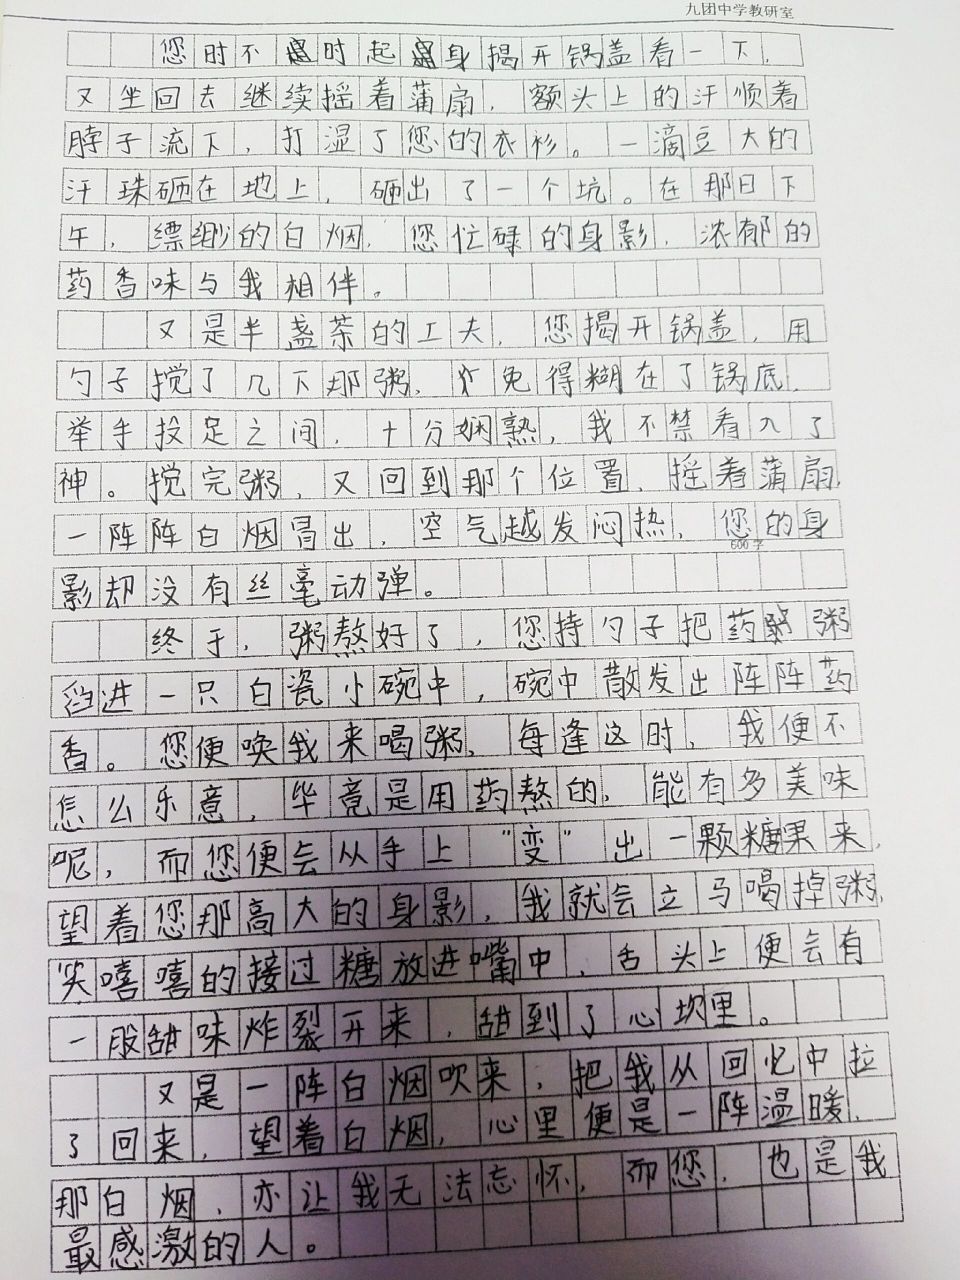 九团中学教研室
您时不时起身揭开锅盖看一下，
又坐回去继续摇着蒲扇，额头上的汗顺着
脖子流下，打湿了您的衣衫。一滴豆大的
汗珠砸在地上，砸出了一个坑。在那日下
午，缥缈的白烟，您忙碌的身影，浓郁的
药香味与我相伴。
又是半盏茶的工夫，您揭开锅盖，用
勺子搅了几下那粥，免得糊在了锅底，
举手投足之间，十分娴熟，我不禁看入了
神。搅完粥，又回到那个位置，摇着蒲扇，
一阵阵白烟冒出，空气越发闷热，您的身
600字
影却没有丝毫动弹。
终于，粥熬好了，您持勺子把药粥
舀进一只白瓷小碗中，碗中散发出阵阵药
香。您便唤我来喝粥，每逢这时，我便不
怎么乐意，毕竟是用药熬的，能有多美味
呢，而您便会从手上"变"出一颗糖果来，
望着您那高大的身影，我就会立马喝掉粥，
笑嘻嘻的接过糖放进嘴中，舌头上便会有
一股甜味炸裂开来，甜到了心坎里。
又是一阵白烟吹来，把我从回忆中拉
了回来，望着白烟，心里便是一阵温暖，
那白烟，亦让我无法忘怀，而您，也是我
最感激的人。